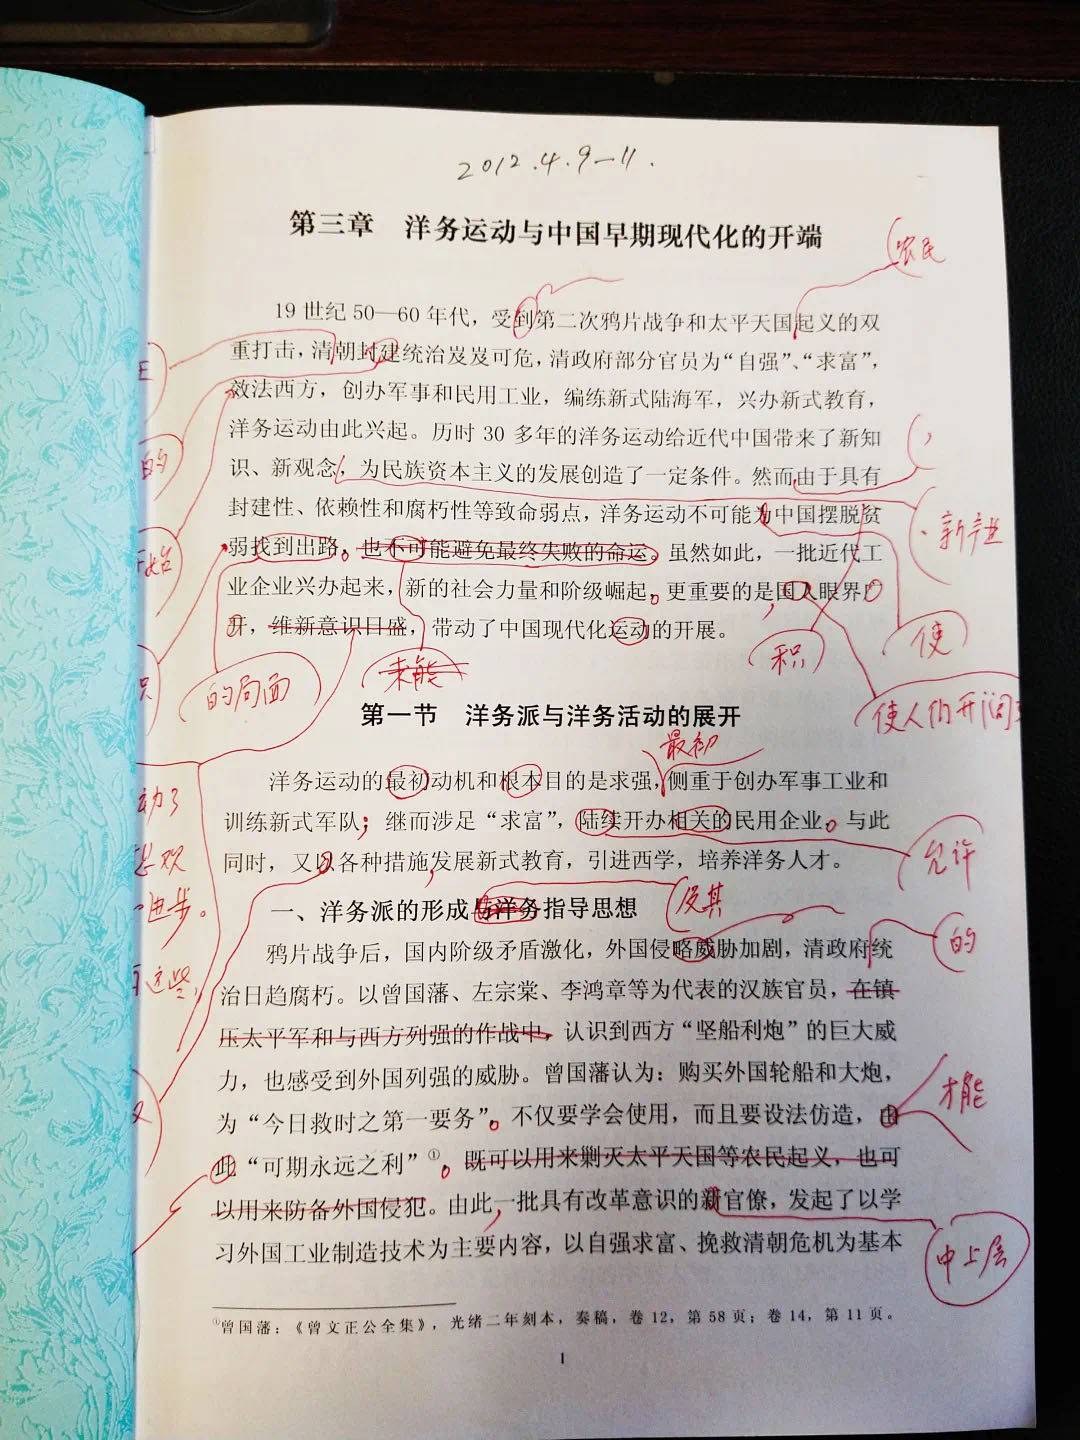 2012.4.9—11.
第三章 洋务运动与中国早期现代化的开端
农民
19 世纪 50—60 年代，受到第二次鸦片战争和太平天国起义的双
重打击，清朝封建统治岌岌可危，清政府部分官员为“自强”、“求富”，
效法西方，创办军事和民用工业，编练新式陆海军，兴办新式教育，
洋务运动由此兴起。历时 30 多年的洋务运动给近代中国带来了新知
的
识、新观念，为民族资本主义的发展创造了一定条件。然而由于具有
封建性、依赖性和腐朽性等致命弱点，洋务运动不可能为中国摆脱贫
新产业
弱找到出路。也不可能避免最终失败的命运。虽然如此，一批近代工
业企业兴办起来，新的社会力量和阶级崛起。更重要的是国人眼界
开，维新意识日盛，带动了中国现代化运动的开展。
使
积
未能
的局面
使人们开阔
第一节 洋务派与洋务活动的展开
最初
洋务运动的最初动机和根本目的是求强，侧重于创办军事工业和
动了
训练新式军队；继而涉足“求富”，陆续开办相关的民用企业。与此
允许
同时，又以各种措施发展新式教育，引进西学，培养洋务人才。
进步。
及其
一、洋务派的形成与洋务指导思想
的
鸦片战争后，国内阶级矛盾激化，外国侵略威胁加剧，清政府统
这些，
治日趋腐朽。以曾国藩、左宗棠、李鸿章等为代表的汉族官员，在镇
压太平军和与西方列强的作战中，认识到西方“坚船利炮”的巨大威
力，也感受到外国列强的威胁。曾国藩认为：购买外国轮船和大炮，
才能
为“今日救时之第一要务”。不仅要学会使用，而且要设法仿造，由
此“可期永远之利”①。既可以用来剿灭太平天国等农民起义，也可
以用来防备外国侵犯。由此，一批具有改革意识的新官僚，发起了以学
习外国工业制造技术为主要内容，以自强求富、挽救清朝危机为基本
中上层
①曾国藩：《曾文正公全集》，光绪二年刻本，奏稿，卷 12，第 58 页；卷 14，第 11 页。
1